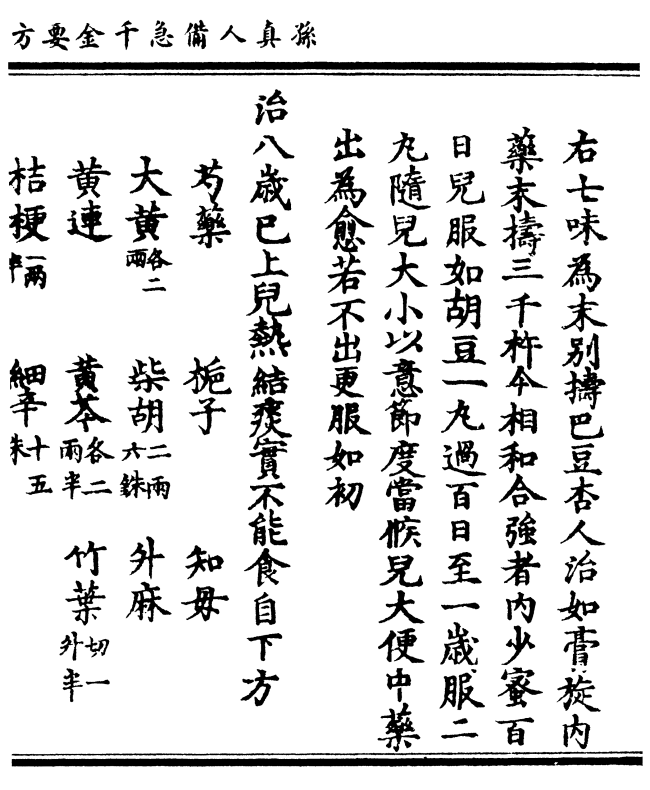 孫真人備急千金要方
右七味為末別擣巴豆杏人治如膏旋内
藥末擣三千杵令相和合強者内少蜜百
日兒服如胡豆一丸過百日至一歲服二
丸隨兒大小以意節度當候兒大便中藥
出為愈若不出更服如初
治八歲已上兒熱結痰實不能食自下方
芍藥 梔子 知母
大黄各二兩 柴胡二兩六銖 升麻
黄連 黄芩各二兩半 竹葉切一升半
桔梗一兩半 細辛十五朱